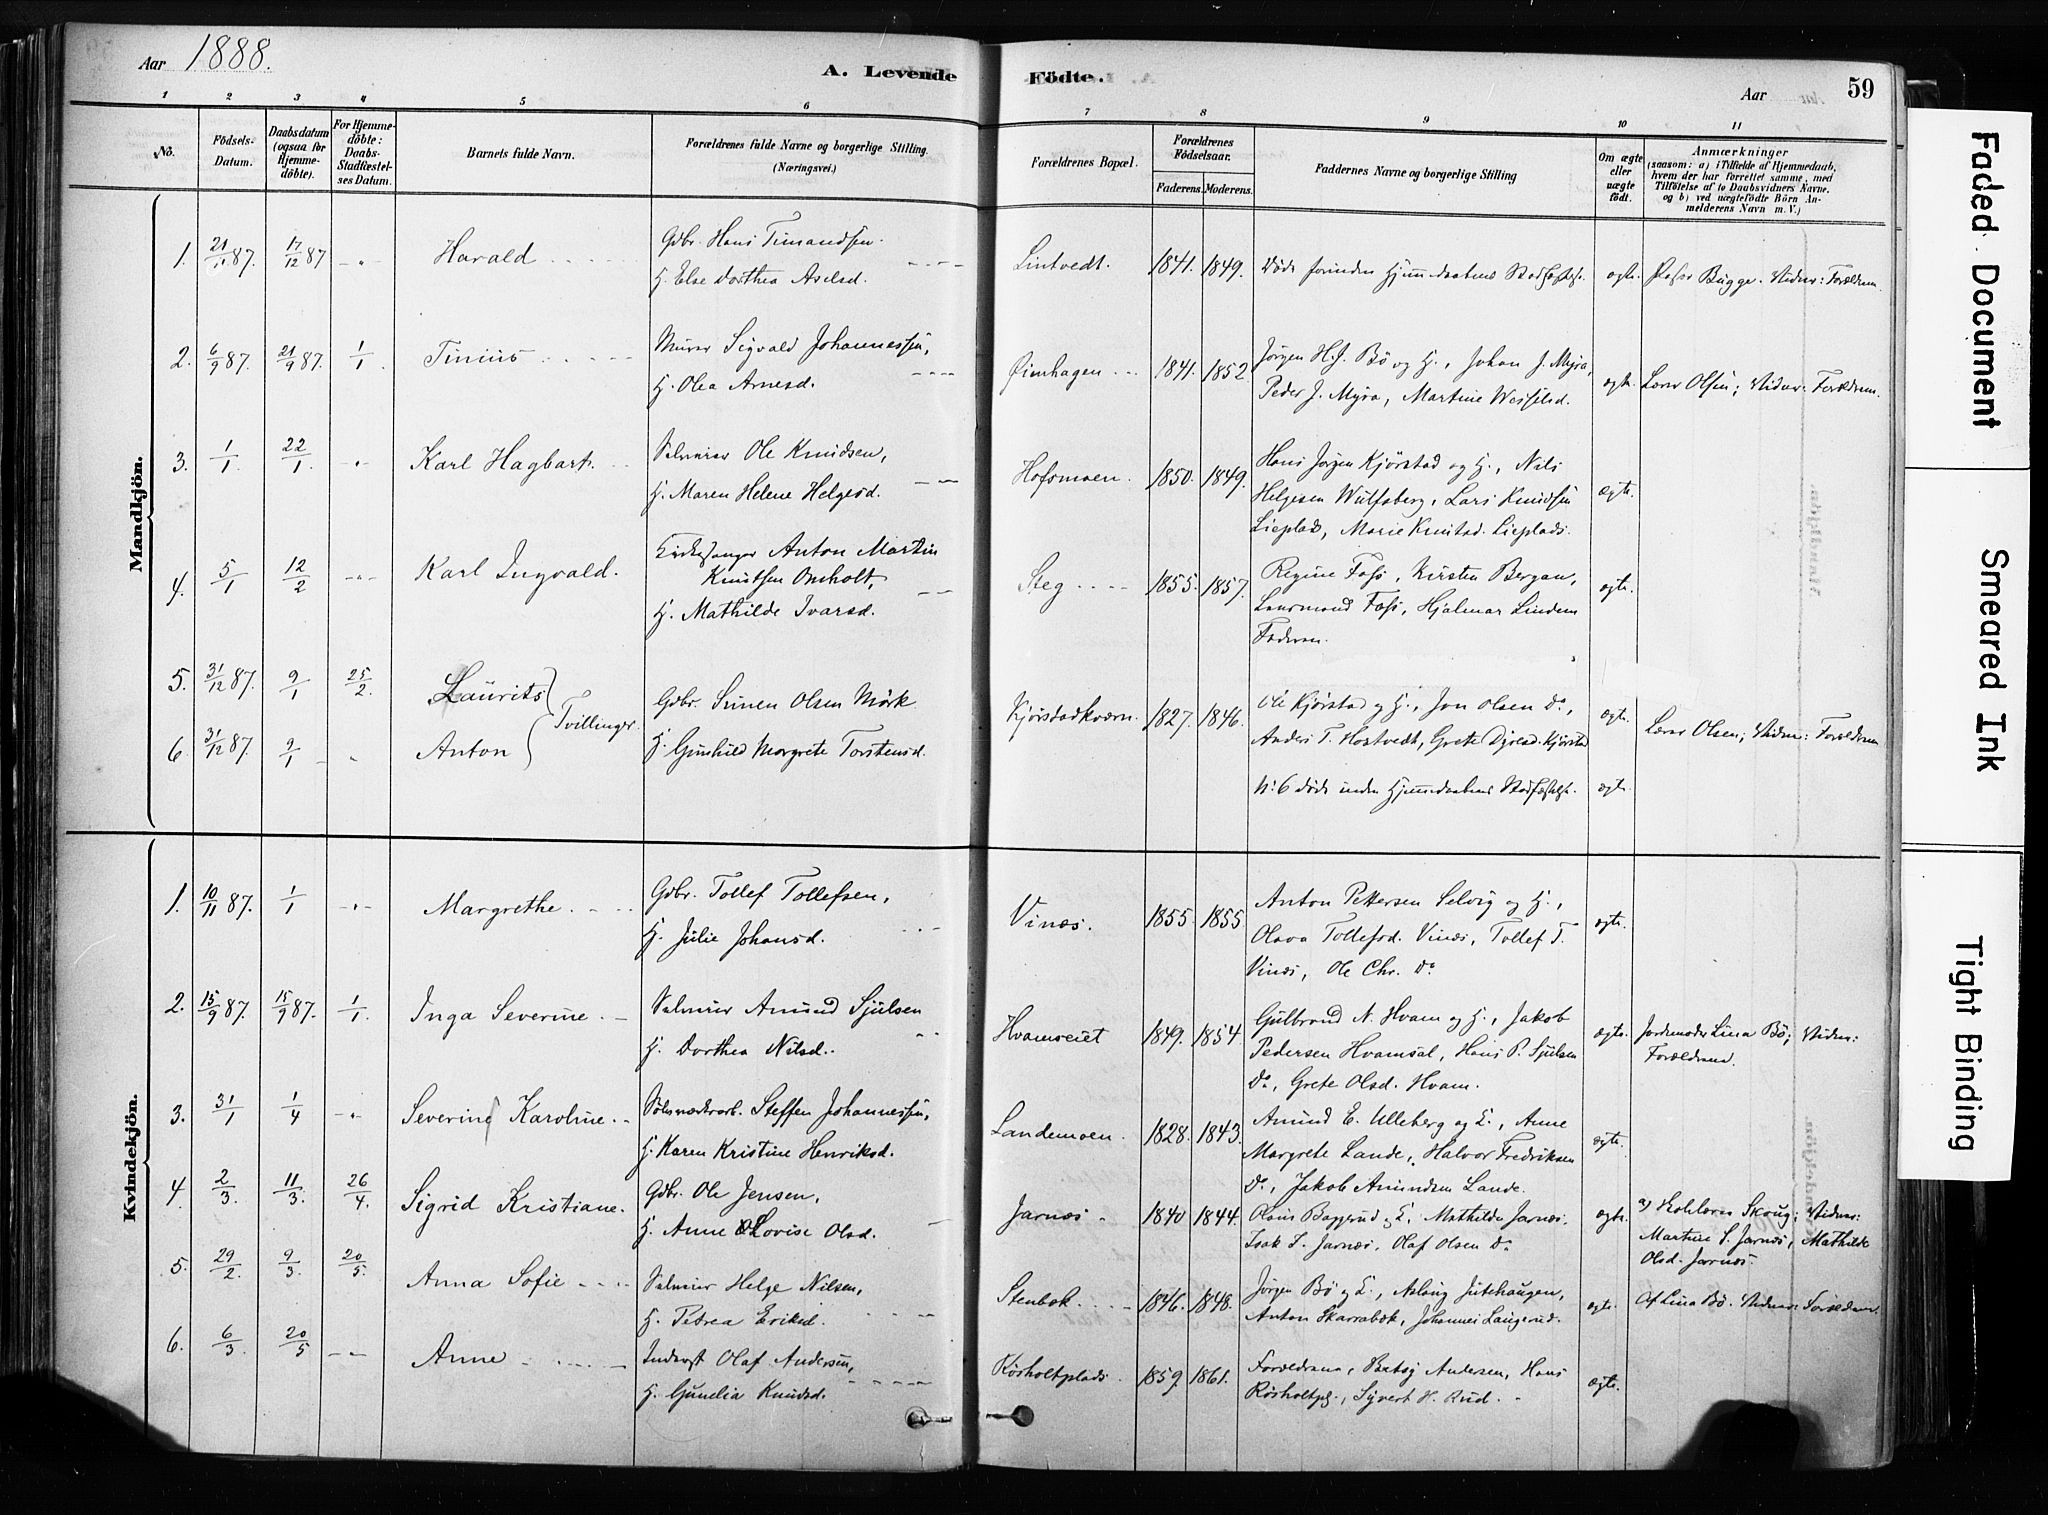 Aar 1888.
A. Levende Födte.
Aar
59
1 2 3 4 5 6 7 8 9 10 11
No.
Födsels-
Datum.
Daabsdatum
(ogsaa for
Hjemme-
döbte).
For Hjemme-
döbte:
Daabs-
Stadfæstel-
ses Datum.
Barnets fulde Navn.
Forældrenes fulde Navne og borgerlige Stilling.
(Næringsvei.)
Forældrenes Bopæl.
Forældrenes
Födselsaar.
Faderens. Moderens.
Faddernes Navne og borgerlige Stilling
Om ægte
eller
uægte
födt.
Anmærkninger
(saasom: a) i Tilfælde af Hjemmedaab,
hvem der har forrettet samme, med
Tilföielse af to Daabsvidners Navne.
og b) ved uægtefödte Börn An-
melderens Navn m. V.)
Mandkjön.
1. 21/11 87. 17/12 87 - " - Harald
Gdbr. Hans Timandsen.
H. Else Dorthea Axelsd.
Lintvedt. 1841. 1849. Døde forinden Hjemmedaabens Stadfæstelse. ægte. Bugge. Vidner: Forældrene.
2. 6/9 87. 21/9 87. 1/1. Tinius
Murer Sigvald Johannessen,
H. Olea Arnesd.
Øienhagen 1841. 1852.
Jørgen H. J. Bö og H., Johan J. Myra,
Peder J. Myra, Martine Wesselsd.
ægte. Lærer Olsen; Vidner: Forældrene.
3. 1/1. 22/1. Karl Hagbart.
Selveier Ole Knudsen,
H. Maren Helene Helgesd.
Hofsmoen. 1850. 1849.
Hans Jørgen Kjörstad og H., Nils
Helgesen Wulfsberg, Lars Knudsen
Lieplads, Marie Knutsd. Lieplads.
ægte.
4. 5/1 12/2 Karl Ingvald.
Kirkesanger Anton Martin
Knutsen Omholt,
H. Mathilde Ivarsd.
Steg 1855. 1857.
Regine Foss, Kirsten Bergan,
Foss, Hjalmar Lindem
Faderen.
ægte.
5. 31/12 87. 9/1 25/2. Laurits
6. 31/12 87. 9/1 Anton
Tvillinger.
Gdbr. Simen Olsen Mörk
H. Gunhild Margrete Torstensd.
Kjörstadkværn. 1827. 1846.
Ole Kjörstad og H., Jon Olsen Do,
Anders T. Hostvedt, Grete Kjörstad
No 6 døde inden Hjemmedaabens Stadfæstelse.
ægte.
ægte.
Lærer Olsen; Vidner: Forældrene
Kvindekjön.
1. 10/11 87. 1/1 Margrethe.
Gdbr. Tollef Tollefsen,
H. Julie Johansd.
Vinæs. 1855. 1855
Anton Pettersen Selvig og H.,
Olava Tollefsd. Vinæs, Tollef T.
Vinæs, Ole Chr. Do
ægte.
2. 15/9 87. 15/9 87. 1/1 Inga Severine.
Selveier Amund Sjulsen
H. Dorthea Nilsd.
Hvamseiet 1849. 1854.
Gulbrand N. Hvam og H., Jakob
Pedersen Hvamsal, Hans P. Sjulsen
Do, Grete Olsd. Hvam.
ægte.
Jordemoder Lina Bö; Vidner:
Forældrene.
3. 31/1 1/4 Severine Karoline.
Steffen Johannessen,
H. Karen Kristine Henriksd.
Landemoen. 1828. 1843.
Amund E. Ulleberg og H., Anne
Margrete Lande, Halvor Fredriksen
Do, Jakob Amundsen Lande.
ægte.
4. 2/3. 11/3. 26/4. Sigrid Kristiane.
Gdbr. Ole Jensen,
H. Anne Lovise Olsd.
Jarnæs. 1840 1844.
Olaus Baggerud og H., Mathilde Jarnæs,
Isak I. Jarnæs, Olaf Olsen Do
ægte.
a) Skoug; Vidner:
Martine S. Jarnæs, Mathilde
Olsd. Jarnæs.
5. 29/2. 9/3. 20/5. Anna Sofie
Selveier Helge Nilsen,
H. Petrea Eriksd.
Stenbæk. 1846. 1848.
Jørgen Bö og H., Aslaug Juteshaugen,
Anton Skarrabæk, Johannes Laugerud.
ægte.
Af Lina Bö. Vidner: Forældrene.
6. 6/3. 20/5. Anne
Inderst Olaf Andersen,
H. Gunelia Knudsd.
Rösholtplads. 1859. 1861.
Forældrene, Betsy Andersen, Hans
Rösholtpl., Syvert H. Rud.
ægte.
Faded Document
Smeared Ink
Tight Binding